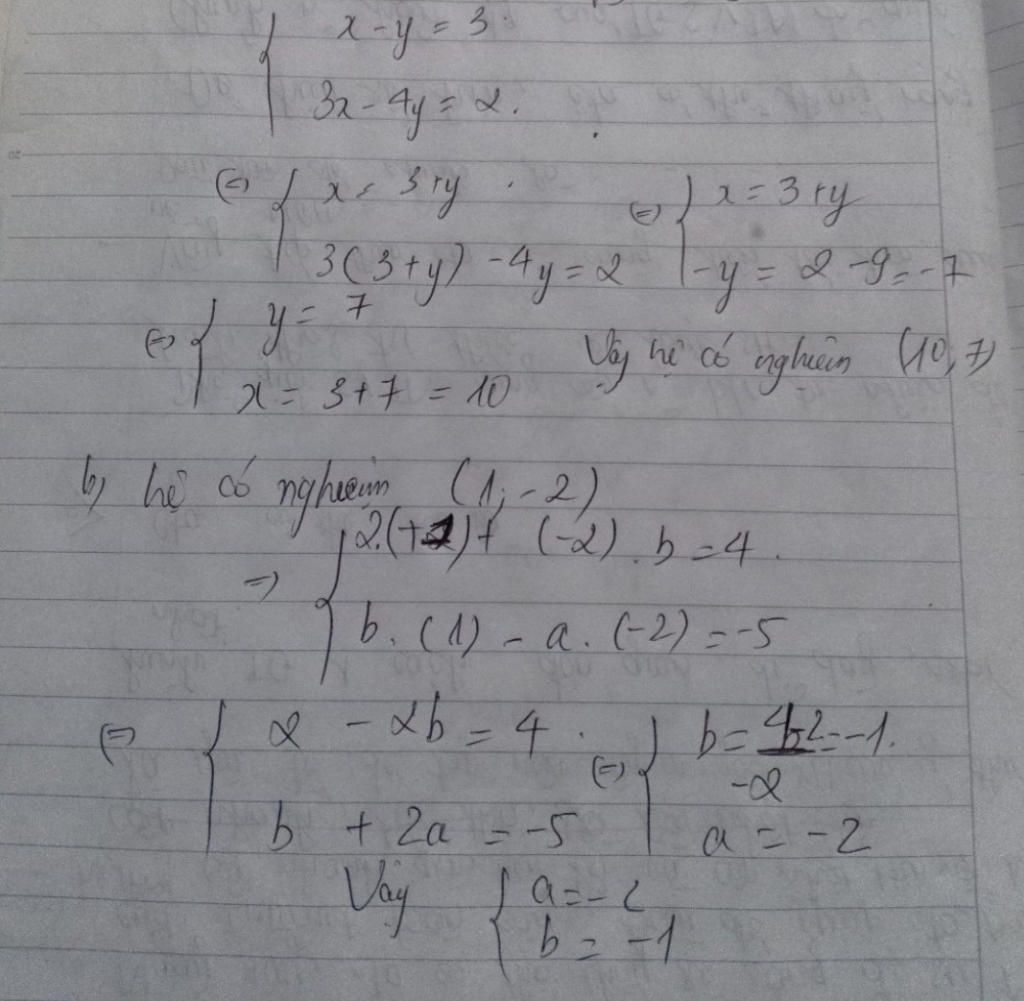 { x - y = 3
3x - 4y = 2.
(=) { x = 3+y (=) { x = 3+y
3(3+y) - 4y = 2 -y = 2 - 9 = -7
(=) { y = 7
x = 3+7 = 10 Vậy hệ có nghiệm (10, 7)
b, hệ có nghiệm (1; -2)
=> { 2.(+1) + (-2).b = 4.
b.(1) - a.(-2) = -5
(=) { 2 - 2b = 4. (=) { b = 4-2/-2 = -1.
b + 2a = -5 a = -2
Vậy { a = -2
b = -1